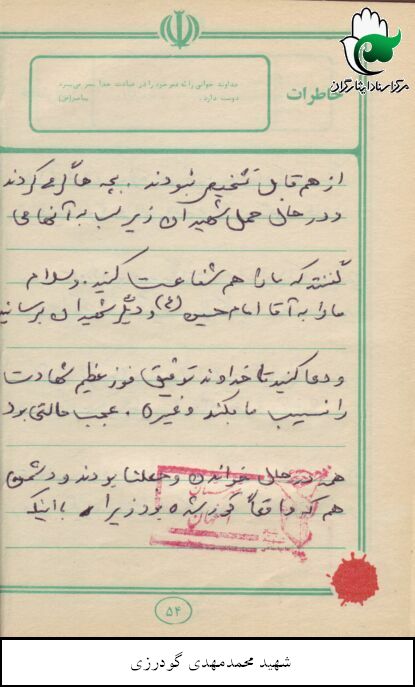 مرکز اسناد ایثارگران
خاطرات
خداوند جوانی را که عمر خود را در عبادت خدا بسر می‌برد
دوست دارد.
پیامبر(ص)
از هم قابل تشخیص نبودند. بچه ها گریه می کردند
و در حال حمل شهیدان زیر لب به آنها می
گفتند که ما را هم شفاعت کنید. و سلام
ما را به آقا امام حسین (ع) و دیگر شهیدان برسانید
و دعا کنید تا خداوند توفیق فوز عظیم شهادت
را نسیب ما بکند و غیره. عجب حالتی بود
همه در حال خواندن وجعلنا بودند و دشمن
هم که واقعاً کور شده بود زیرا با اینکه
اصفهان
۵۴
شهید محمدمهدی گودرزی